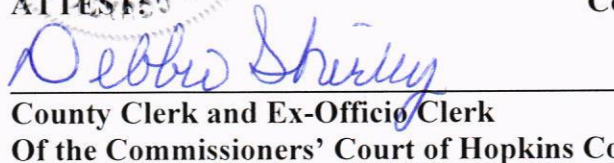 ATTEST:
Debbie Shirley
County Clerk and Ex-Officio Clerk
Of the Commissioners' Court of Hopkins Co